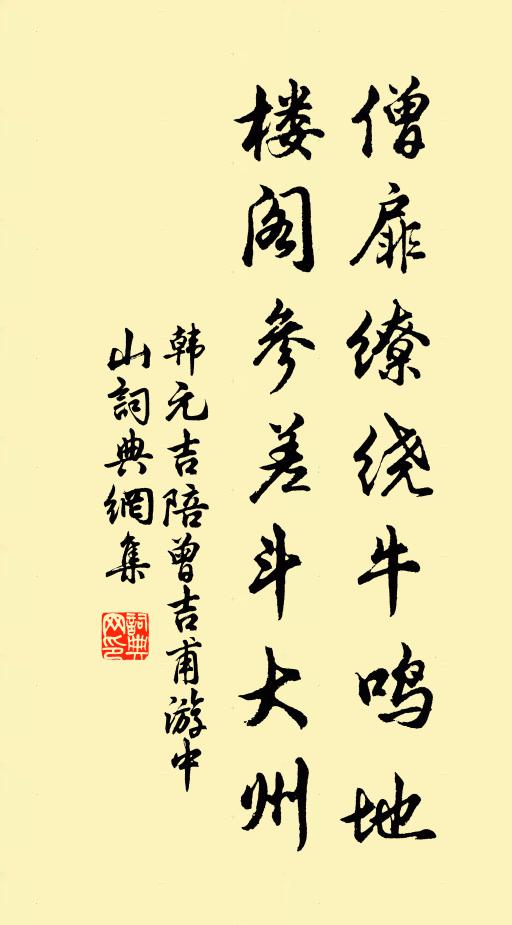 僧扉缭绕牛鸣地
楼阁参差斗大州
韩元吉陪曾吉甫游中
山詞典網集
詞典
网印